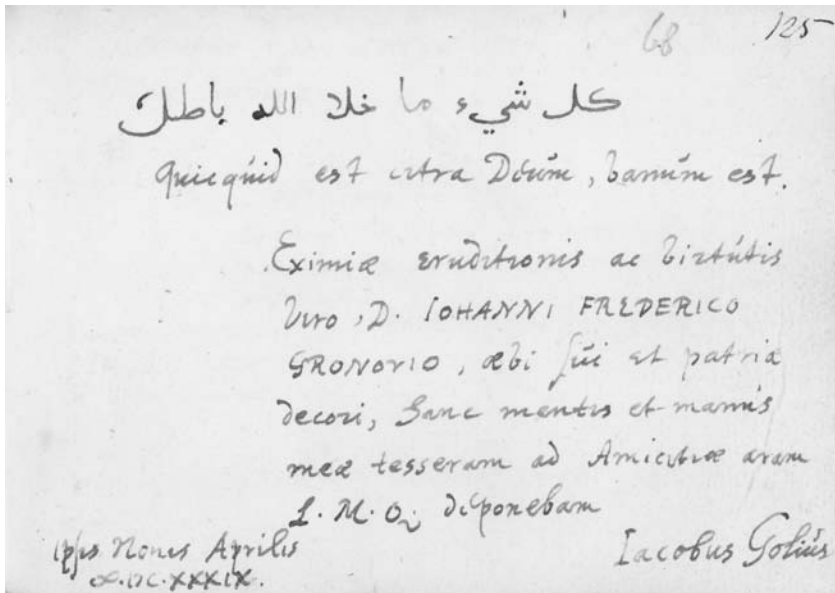 68 125
كل شيء ما خلا الله باطل
Quicqúid est citra Deúm, vanúm est.
Eximiæ eruditionis ac virtútis
viro, D. IOHANNI FREDERICO
GRONOVIO, ævi súi et patriæ
decori, hanc mentis et manús
meæ tesseram ad Amicitiæ aram
L. M. Q. deponebam
Ipsis Nonis Aprilis
∞.IƆC.XXXIX.
Iacobus Golius